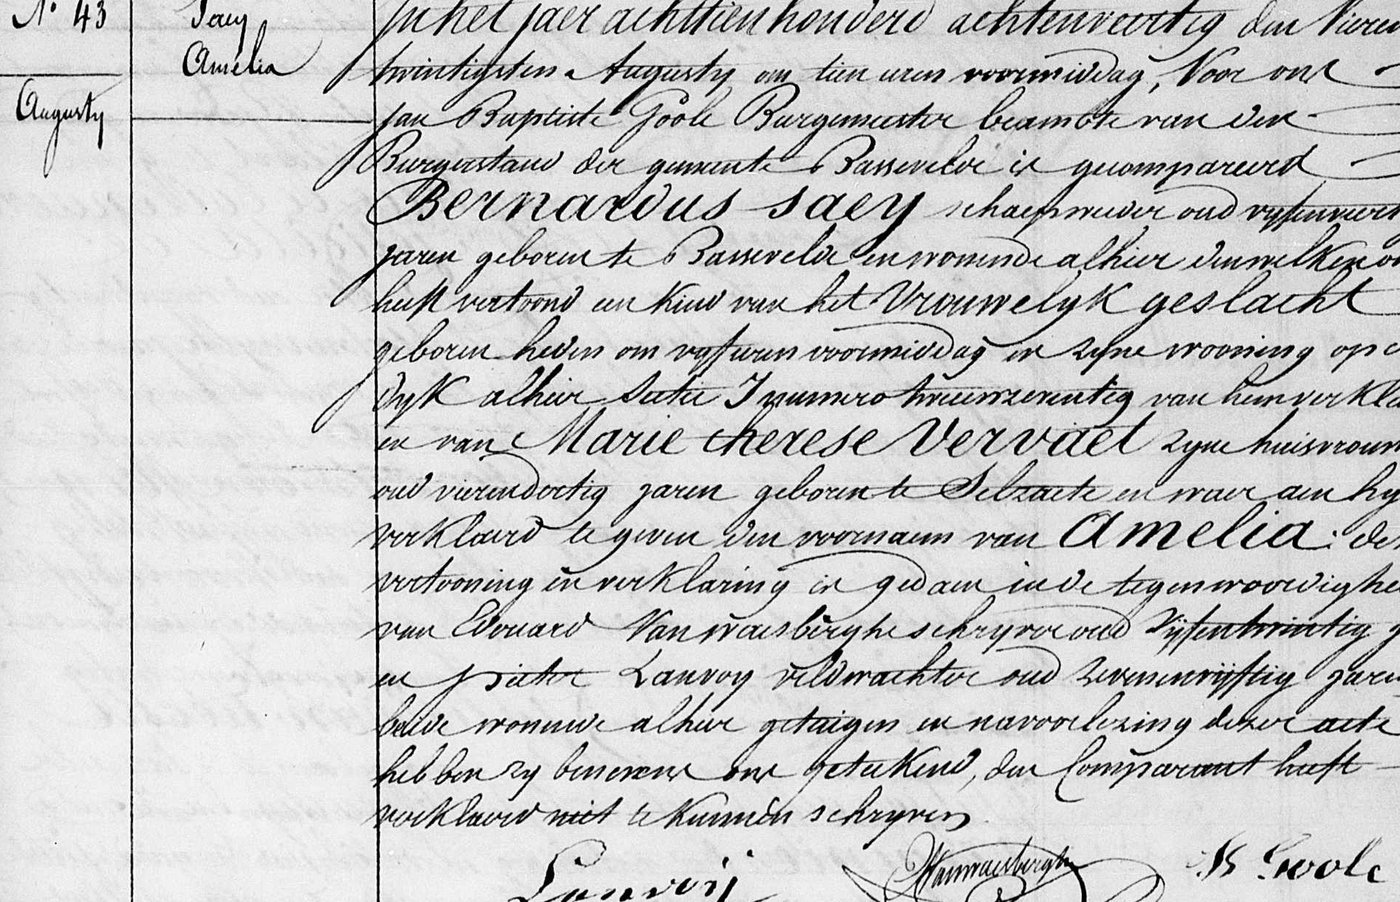 N° 43
Saey
Amelia
Augusty
In het jaer achttien honderd achtenveertig den Vieren
twintigsten Augusty om tien uren voormiddag, Voor ons
Jan Baptiste Goole Burgemeester beambte van den
Burgerstand der gemeente Bassevelde is gecompareerd
Bernardus Saey schaepweder oud vyfenveert
jaren geboren te Bassevelde en wonende alhier denwelken on
heeft vertoond een kind van het Vrouwelyk geslacht
geboren heden om vyf uren voormiddag in zyne wooning op
dyk alhier Sectie J numero tweenzeventig van hem verkla
en van Marie therese Vervaet zyne huisvrouw
oud vierendertig jaren geboren te Selzaete en waer aen hy
verklaerd te geven den voornaem van Amelia: de
vertooning en verklaring is gedaen in de tegenwoordighe
van Edouard Van waesberghe schryver oud Vyfentwintig j
en pieter Lanvoy veldwachter oud zevenenvyftig jaren
beide wonende alhier getuigen en navoorlezing dezer acte
hebben zy benevens ons geteekend, den Comparant heeft
verklaerd niet te kunnen schryven
Lanvoij Vanwaesberghe JB Goole